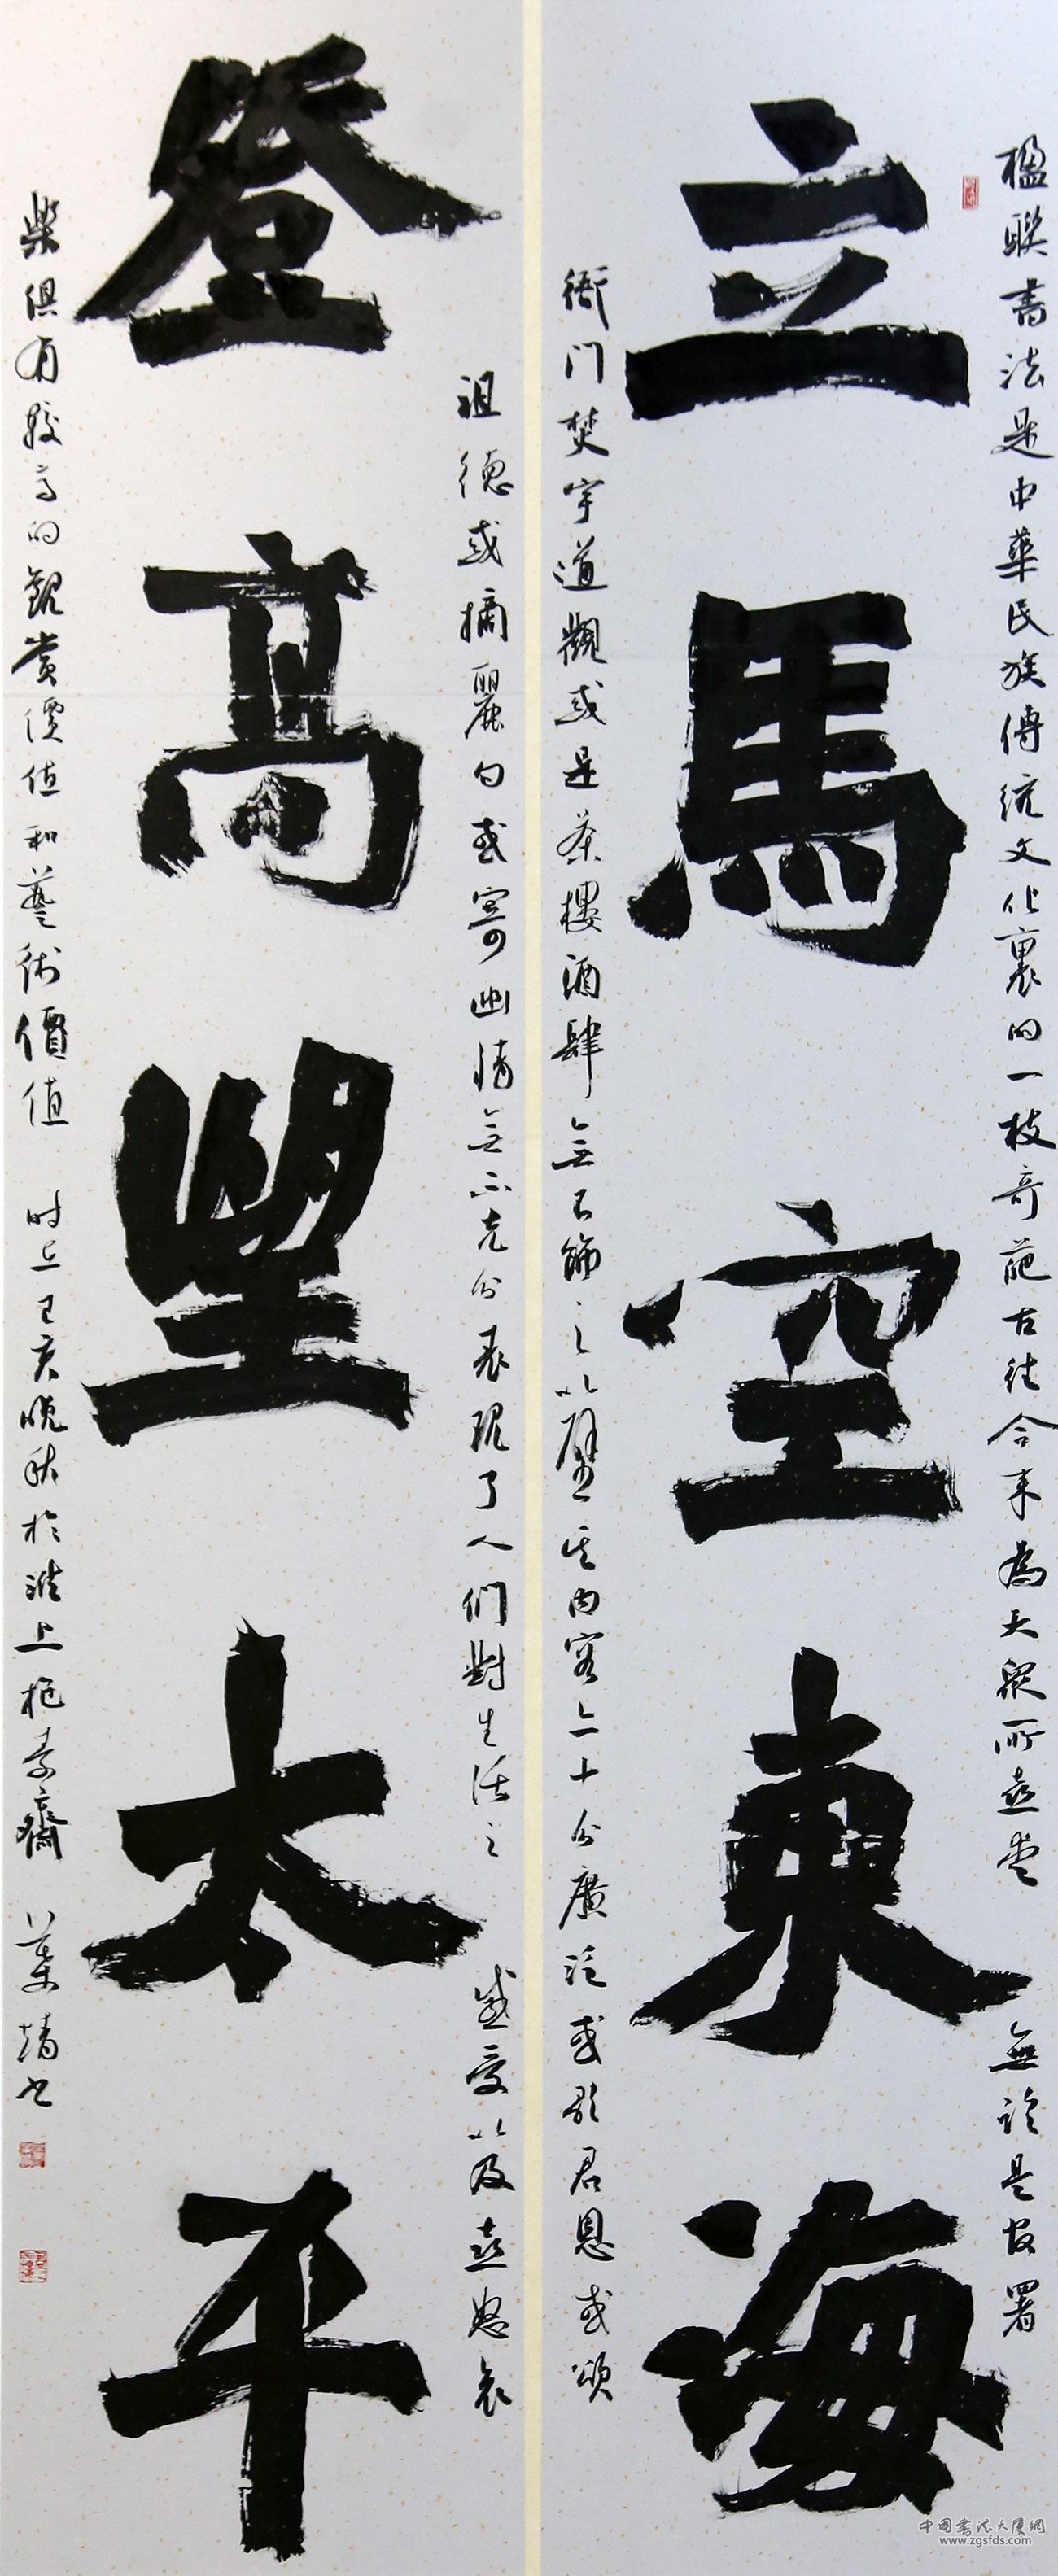 立馬空東海
登高望太平
楹聯書法是中華民族傳統文化裏的一枝奇葩古往今來為大眾所喜愛 無論是官署
衙门焚宇道觀或是茶樓酒肆無不飾之以壁其内容亦十分廣泛或歌君恩或頌
祖德或摘麗句或寄幽情無不充分表現了人們對生活之 感受以及喜怒哀
樂俱有較高的觀赏價值和藝術價值 时在己亥晚秋於淮上抱素齋 葉靖书
中国书法大厦网
www.zgsfds.com